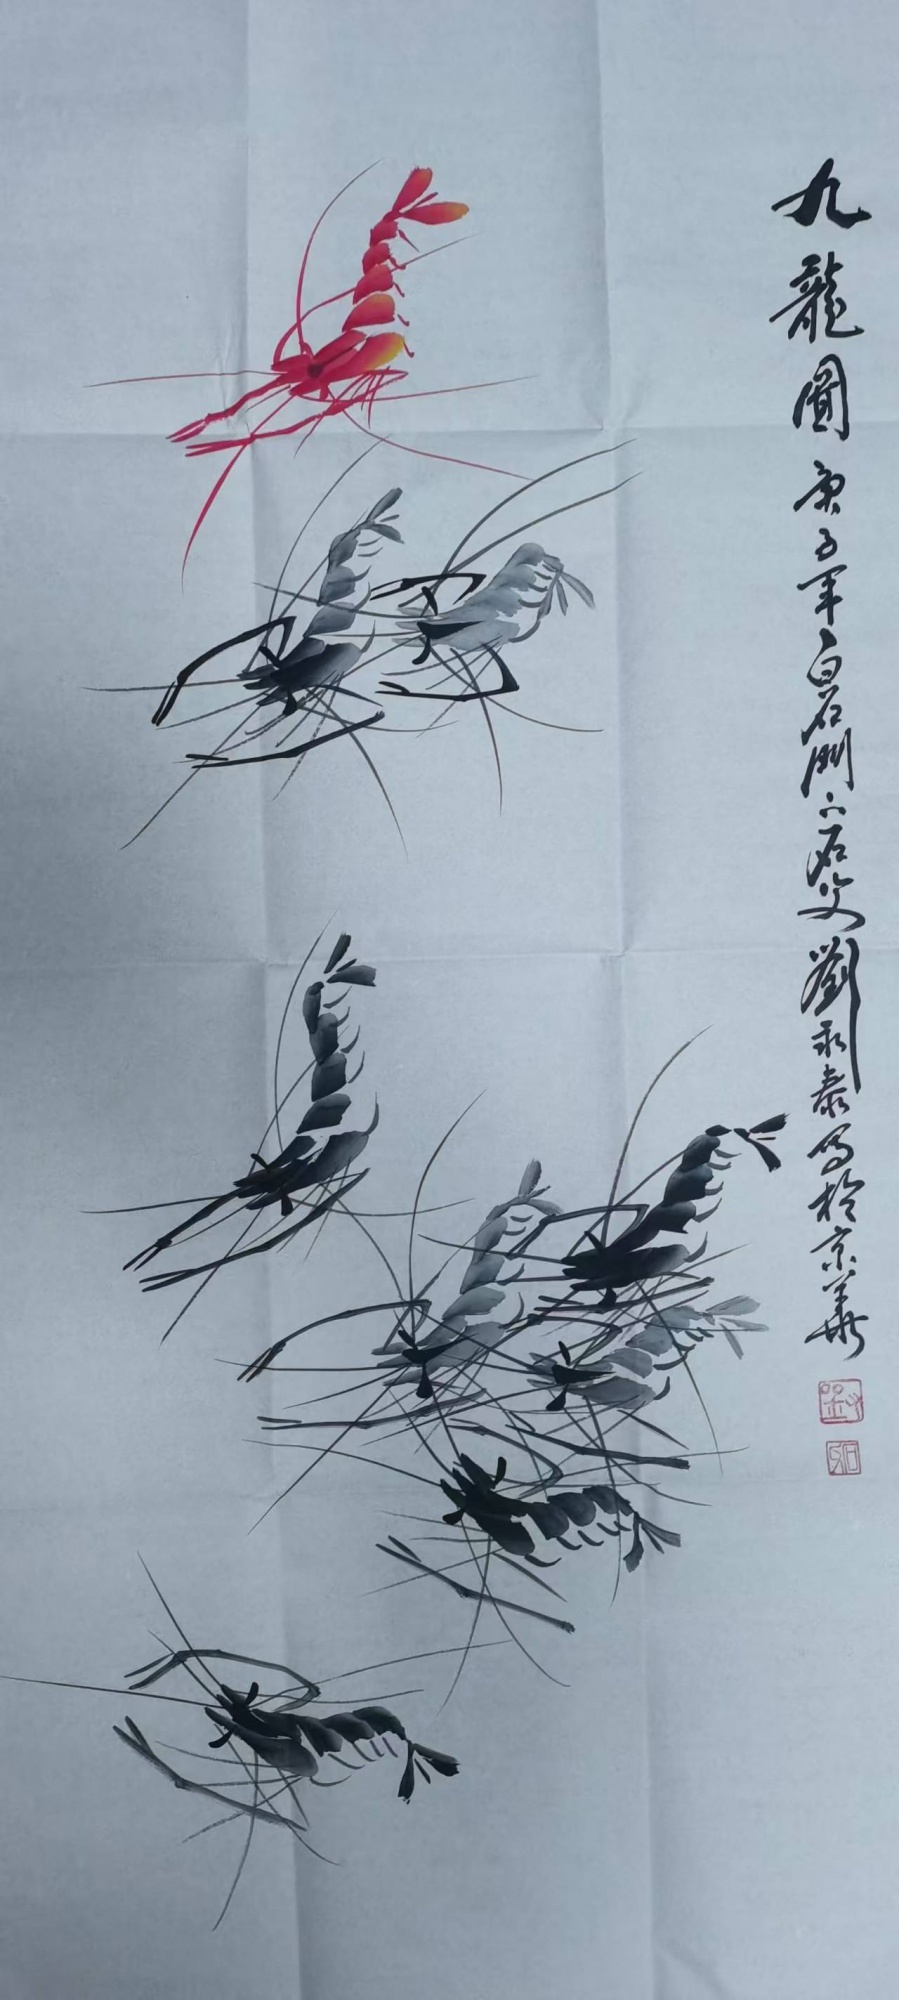 九龍圖庚子年白石門下石父劉永泰写於京華